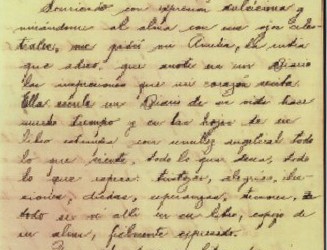 Sonriendo con expresión dulcísima y
mirándome al alma con sus ojos celes-
tiales, me pidió mi Amelia, la rubia
que adoro, que anote en un Diario
las impresiones que mi corazón reciba.
Ella escribe un Diario de su vida hace
mucho tiempo y en las hojas de su
libro estampa con sencillez angelical todo
lo que siente, todo lo que desea, todo
lo que espera: tristezas, alegrías, ilu-
siones, dudas, esperanzas, temores,
todo se ve allí en su libro, espejo de
su alma, fielmente expresado.